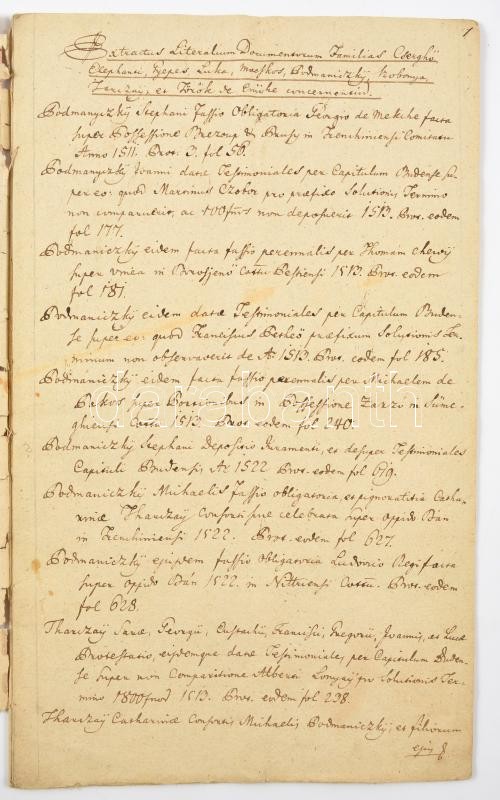 1
Extractus Literalium Documentorum Familias Cserghö
Elephanti, Lepes, Luka, Macskos, Podmaniczky, Kobonya,
Tarczay, et Török de Enÿke concernentium.
Podmanyczky Stephani Fassio Obligatoria Georgio de Mekche facta
super Possessione Brezoup & Prusÿ in Trenchiniensi Comitatu
Anno 1511. Prot: D. fol 56.
Podmanyczky Joanni datæ Testimoniales per Capitulum Budense su-
per eo: quod Martinus Czobor pro præfixo Solutionis Termino
non comparuerit, ac 100 fnos non deposuerit 1513. Prot. eodem
fol 177.
Podmaniczky eidem facta fassio perennalis per Thomam
super vinea in Borosjenö Cottu Pestiensi 1513. Prot. eodem
fol 181.
Podmaniczky eidem datæ Testimoniales per Capitulum Buden-
se super eo: quod Franciscus Betheö præfixum Solutionis Ter-
minum non observaverit de Ao 1513. Prot. eodem fol 185.
Podmaniczky eidem facta fassio perennalis per Michaelem de
super Portionibus in Possessione in Süme-
ghiensi Cottu 1513 Prot eodem fol 240.
Podmaniczky Stephani Depositio Juramenti, et desuper Testimoniales
Capituli Budensis Ao 1522 Prot. eodem fol 619.
Podmaniczky Michaelis Fassio obligatoria, et pignoratitia Catha-
rinæ Tharczay Consorti suæ celebrata super Oppido Bán
in Trenchiniensi 1522. Prot. eodem fol 627.
Podmaniczky ejusdem fassio Obligatoria Ludovico Regi facta
super Oppido Bán 1522. in Nittriensi Cottu. Prot. eodem
fol 628.
Tharczay Saræ, Georgii, Eustachii, Francisci, Gregorii, Joannis, et Lucæ
Protestatio, eisdemque datæ Testimoniales per Capitulum Buden-
se super non Comparitione Alberti Lonyay pro Solutionis Ter-
mino 1800 fnor 1513. Prot. eodem fol 238.
Tharczay Catharinæ Consortis Michaelis Podmaniczky, et filiorum
ejus
darabanth